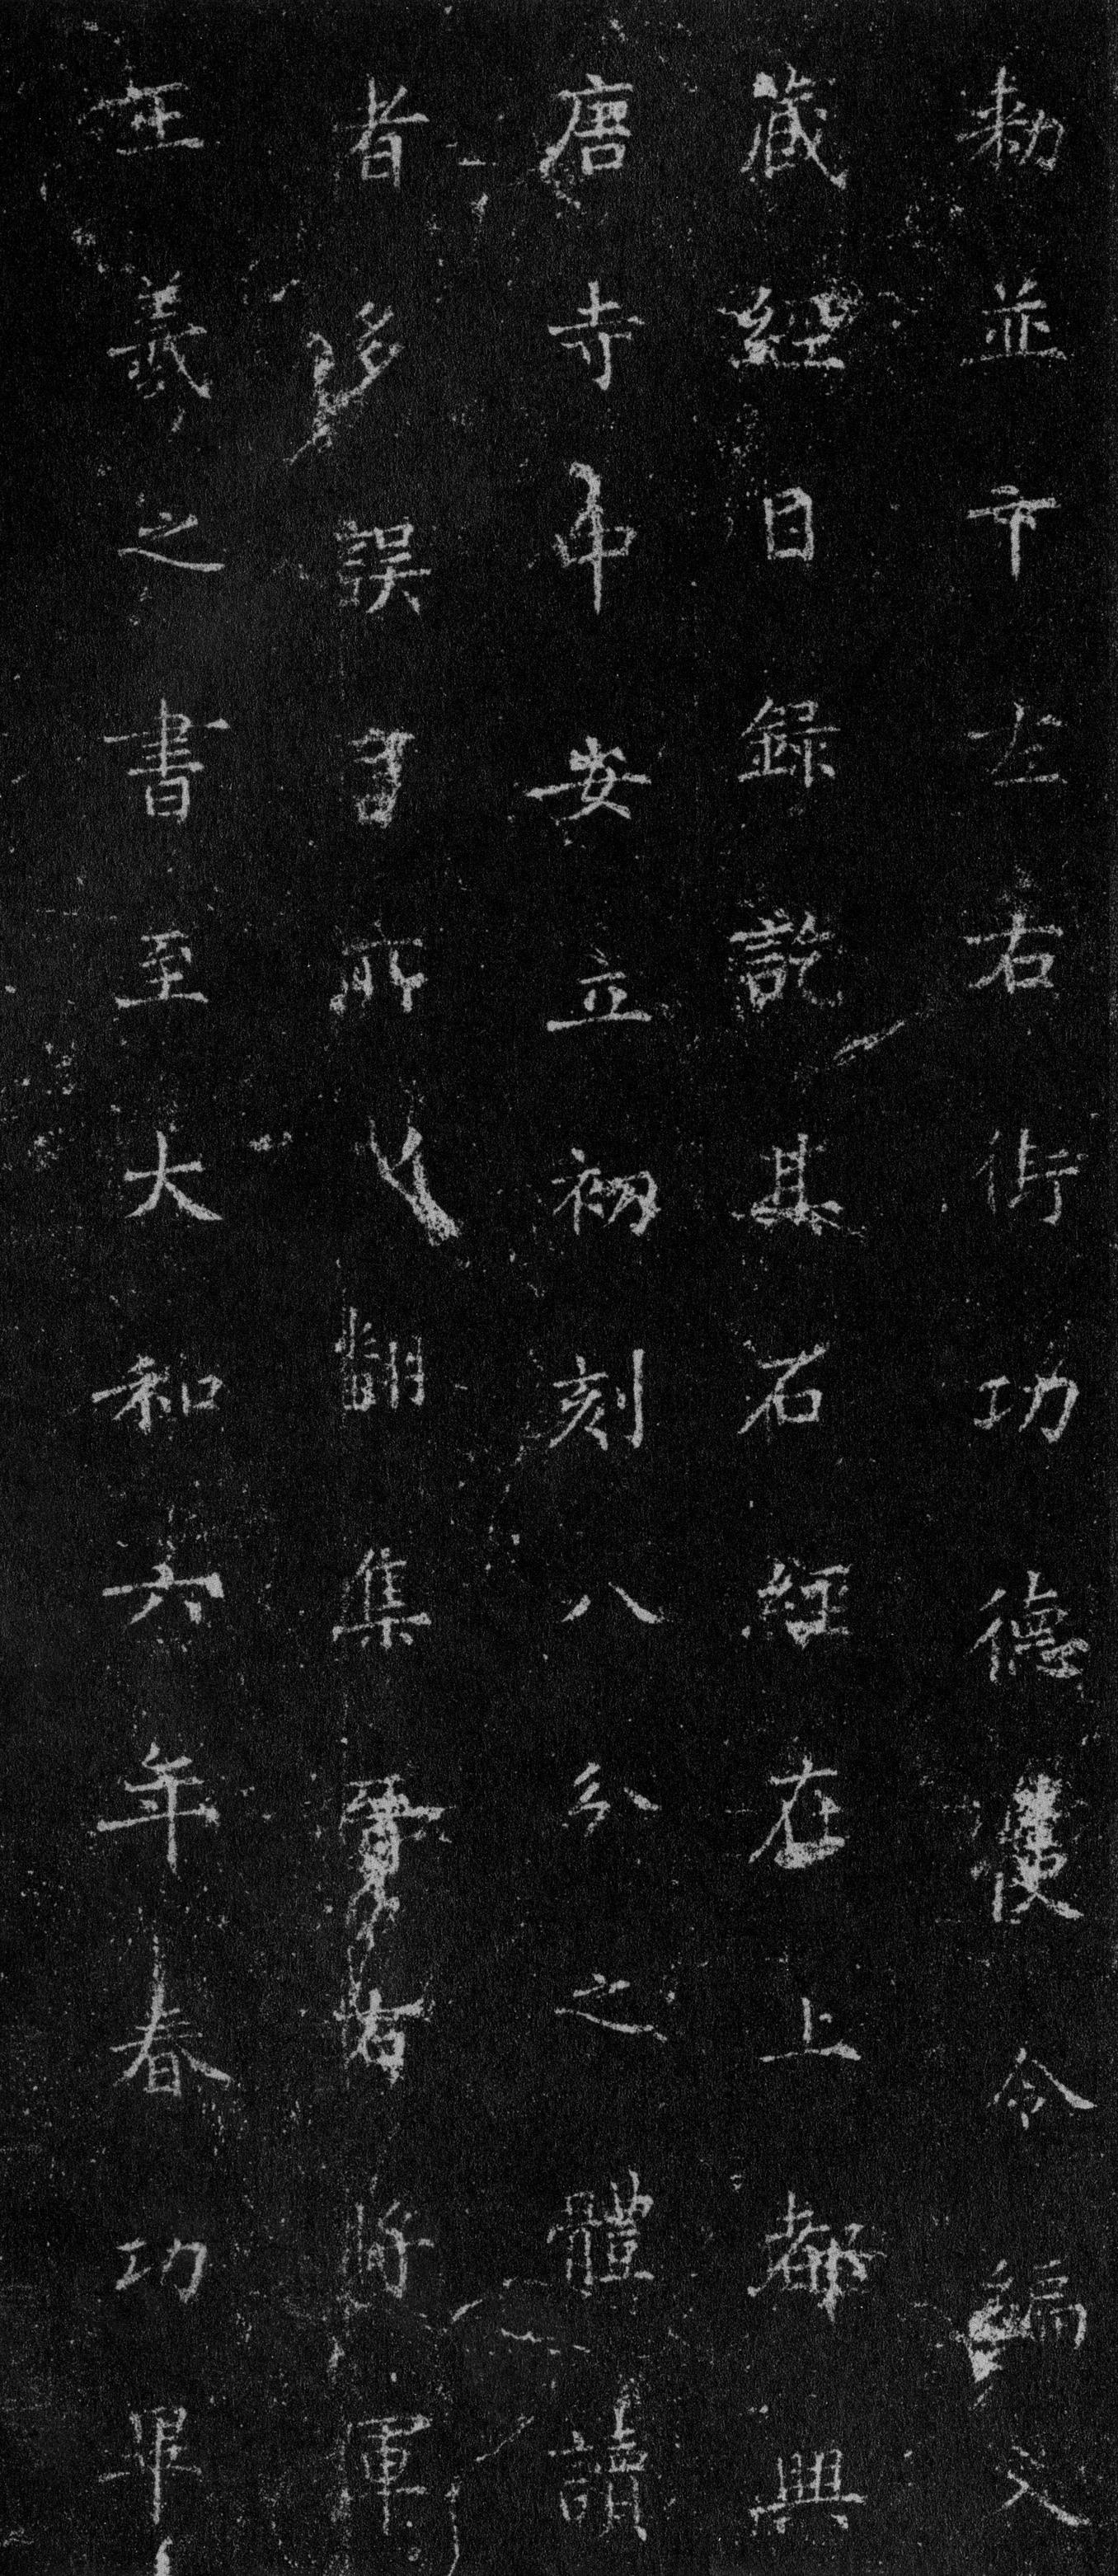 勅並左右街功德使令編入
藏經目錄訖其石經在上都興
唐寺中安立初刻八分之體讀
者多誤所以翻集晉右將軍
王羲之書至大和六年春功畢